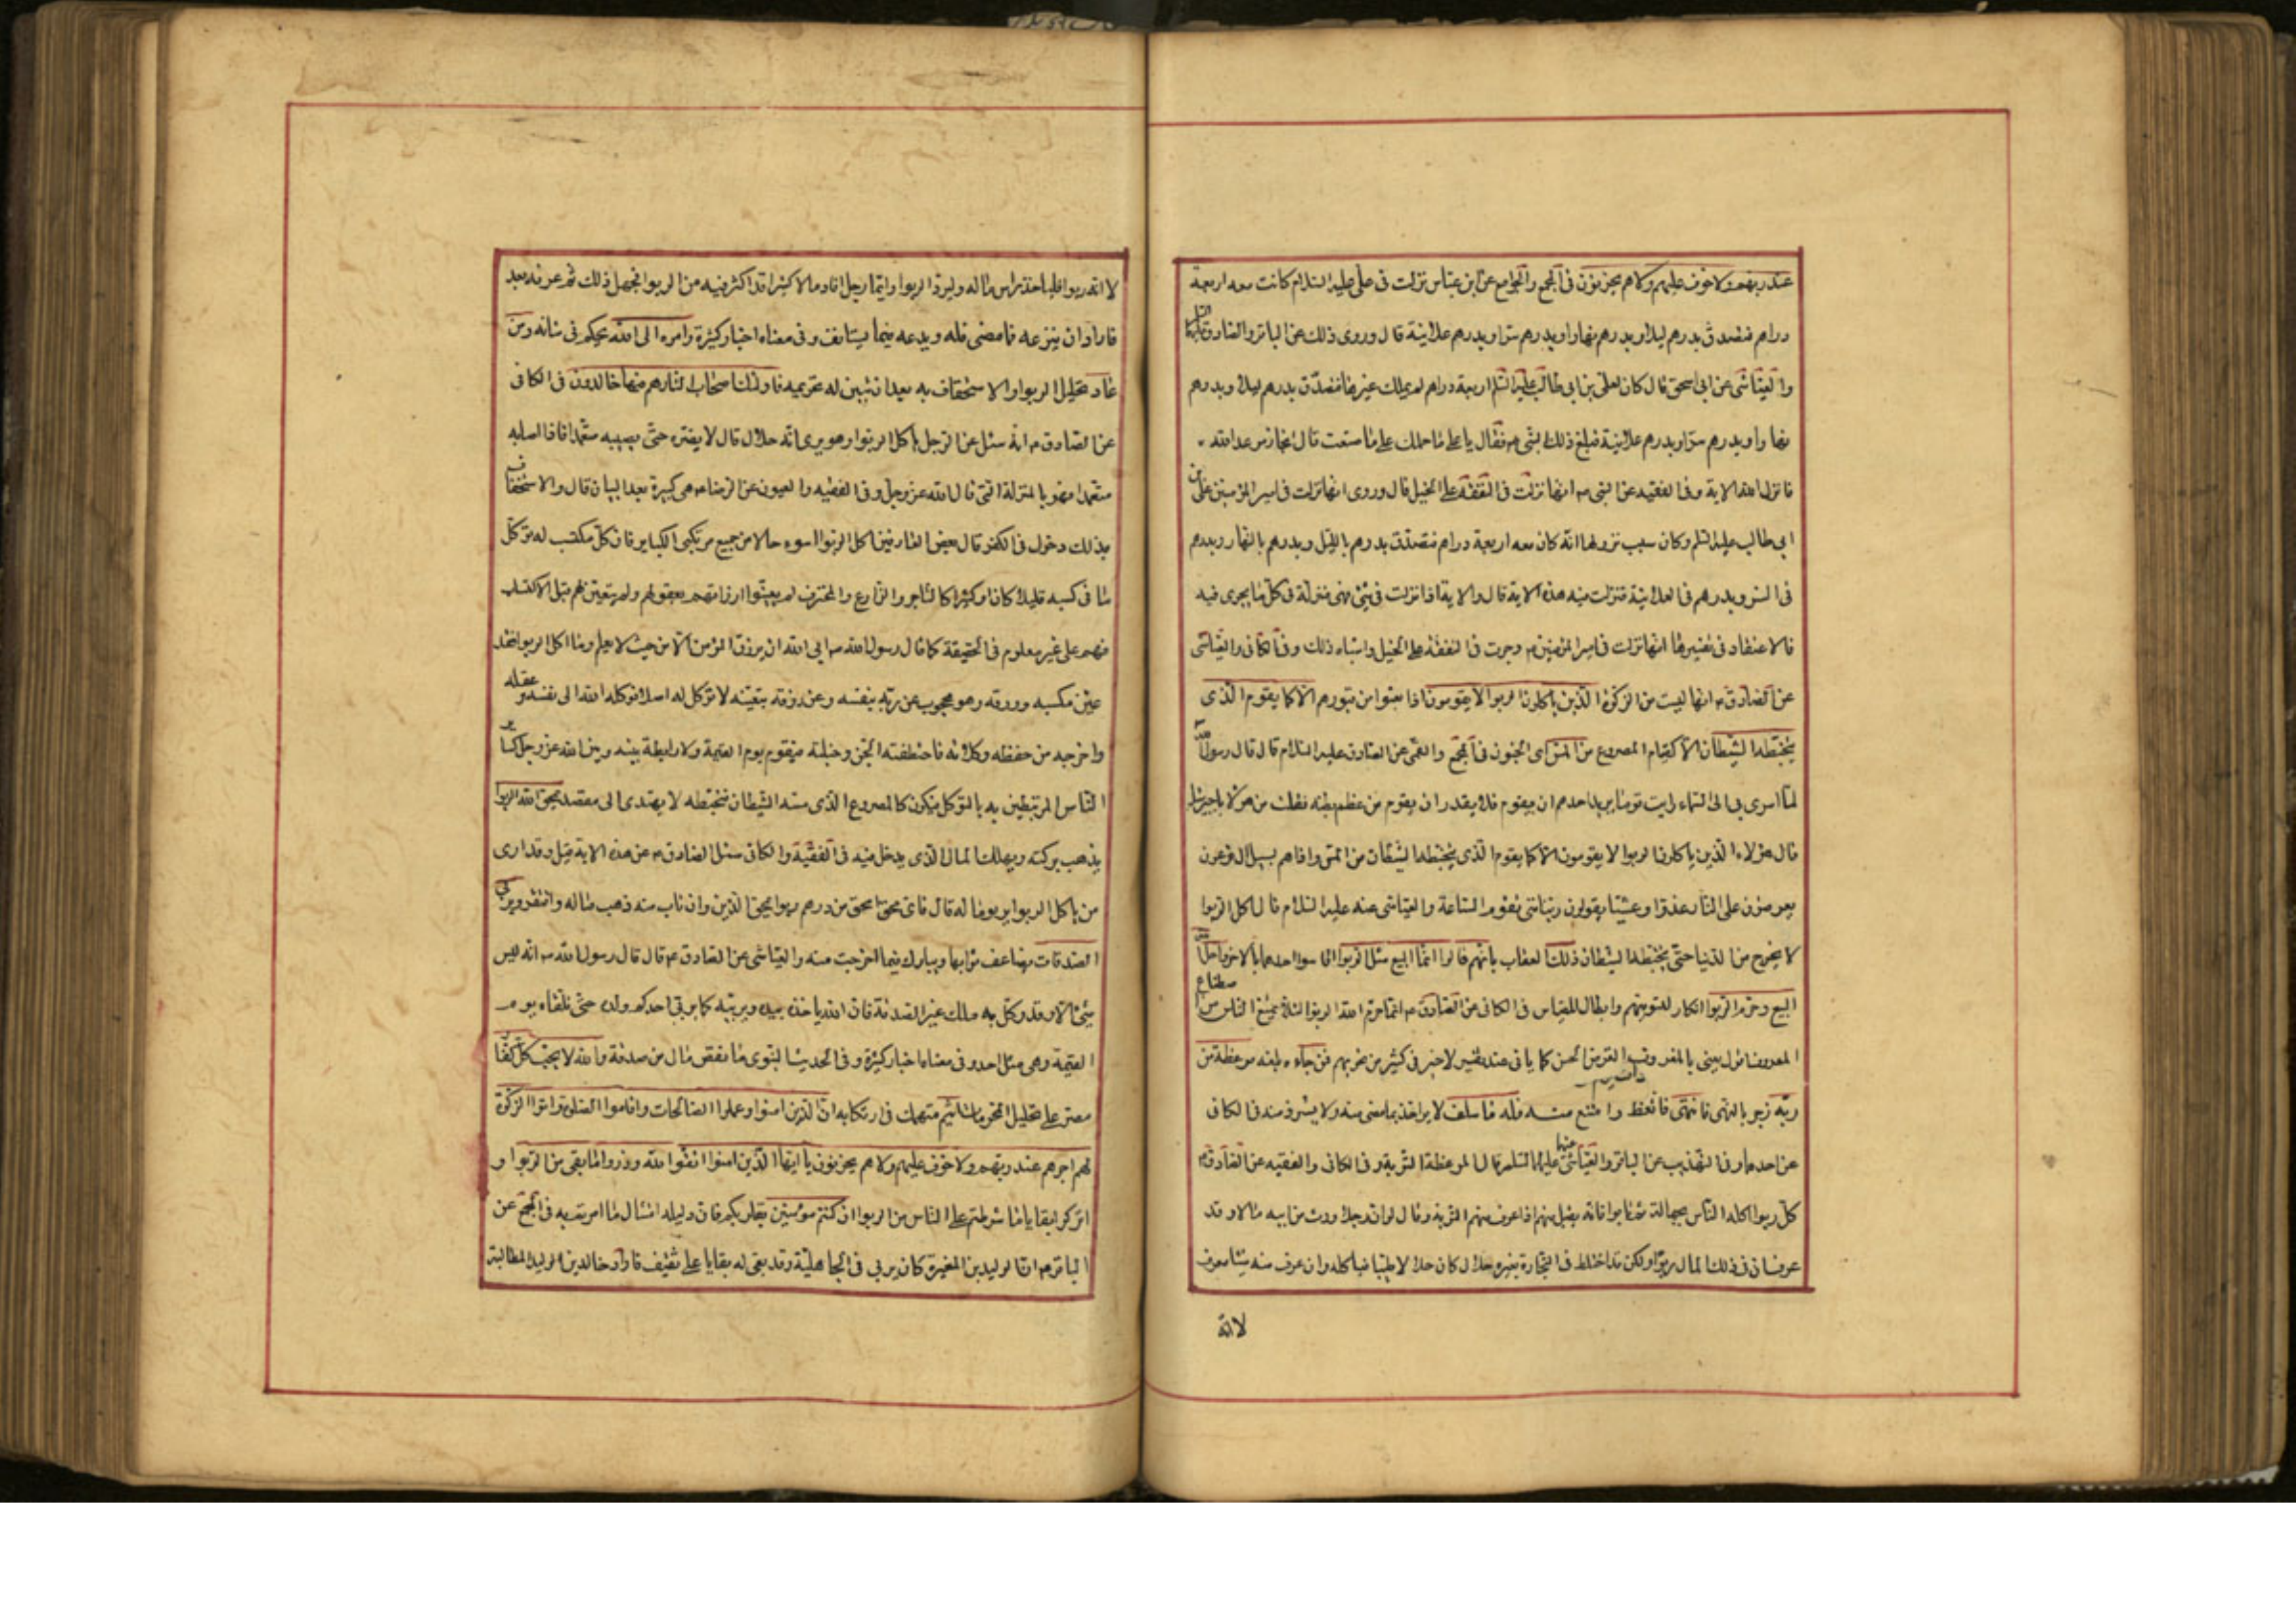 عند ربهم ولا خوف عليهم ولا هم يحزنون فى المجمع والجوامع عن ابن عباس نزلت فى على عليه السلام كانت معه اربعة
دراهم فتصدق بدرهم ليلا وبدرهم نهارا وبدرهم سرا وبدرهم علانية قال وروى ذلك عن الباقر والصادق عليهما السلم
والعياشى عن ابى اسحق قال كان لعلى بن ابى طالب عليه السلم اربعة دراهم لم يملك غيرها فتصدق بدرهم ليلا وبدرهم
نهارا وبدرهم سرا وبدرهم علانية فبلغ ذلك النبى ص فقال يا على ما حملك على ما صنعت قال انجاز موعد الله
فانزل الله الاية وفى الفقيه عن النبى ص انها نزلت فى النفقة على الخيل قال وروى انها نزلت فى امير المؤمنين على بن
ابى طالب عليه السلم وكان سبب نزولها انه كان معه اربعة دراهم فتصدق بدرهم بالليل وبدرهم بالنهار وبدرهم
فى السر وبدرهم فى العلانية فنزلت فيه هذه الاية قال والاية اذا نزلت فى شئ فهى منزلة فى كل ما يجرى فيه
فالاعتقاد فى تفسيرها انها نزلت فى امير المؤمنين ع وجرت فى النفقة على الخيل واشباه ذلك وفى الكافى والعياشى
عن الصادق ع انها ليست من الزكوة الذين ياكلون الربوا لا يقومون اذا بعثوا من قبورهم الا كما يقوم الذى
يتخبطه الشيطان الا كقيام المصروع من المس اى الجنون فى المجمع والقمى عن الصادق عليه السلام قال قال رسول الله ص
لما اسرى بى الى السماء رايت قوما يريد احدهم ان يقوم فلا يقدر ان يقوم من عظم بطنه فقلت من هؤلاء يا جبرئيل
قال هؤلاء الذين ياكلون الربوا لا يقومون الا كما يقوم الذى يتخبطه الشيطان من المس واذا هم بسبيل ال فرعون
يعرضون على النار غدوا وعشيا يقولون ربنا متى تقوم الساعة والعياشى عنه عليه السلام قال اكل الربوا
لا يخرج من الدنيا حتى يتخبطه الشيطان ذلك العقاب بانهم قالوا انما البيع مثل الربوا احدهما بالاخر واحل الله
البيع وحرم الربوا انكار لتسويتهم وابطال للقياس فى الكافى عن الصادق ع انما حرم الله الربوا لئلا يمتنع الناس من اصطناع
المعروف اقول يعنى بالمعروف القرض الحسن كما ياتى عند تفسير لا خير فى كثير من نجويهم فمن جاءه بلغه موعظة من
ربه زجر بالنهى فانتهى فاتعظ وامتنع منه فله ما سلف لا يؤاخذ بما مضى منه ولا يسترد منه فى الكافى
عن احدهما وفى التهذيب عن الباقر والعياشى عنهما عليهما السلم قال الموعظة التوبة وفى الكافى والفقيه عن الصادق ع
كل ربوا اكله الناس بجهالة ثم تابوا فانه يقبل منهم اذا عرف منهم التوبة وقال لو ان رجلا ورث من ابيه مالا وقد
عرف ان فى ذلك المال ربوا ولكن قد اختلط فى التجارة بغيره حلال كان حلالا طيبا فياكله وان عرف منه شيئا معروف
لا انه
لا انه ربوا فلياخذ راس ماله وليرد الربوا وايما رجل افاد مالا كثيرا قد اكثر فيه من الربوا فجهل ذلك ثم عرفه بعد
فاراد ان ينزعه فما مضى فله ويدعه فيما يستانف وفى معناه اخبار كثيرة وامره الى الله يحكم فى شانه ومن
عاد بتحليل الربوا والاستخفاف به بعد ان تبين له تحريمه فاولئك اصحاب النار هم فيها خالدون فى الكافى
عن الصادق ع انه سئل عن الرجل ياكل الربوا وهو يرى انه حلال قال لا يضره حتى يصيبه متعمدا فاذا اصابه
متعمدا فهو بالمنزلة التى قال الله عز وجل وفى الفقيه والعيون عن الرضا ع هى كبيرة بعد البيان قال والاستخفاف
بذلك دخول فى الكفر قال بعض العارفين اكل الربوا اسوء حالا من جميع مرتكبى الكباير فان كل مكتسب له توكل
ما فى كسبه قليلا كان او كثيرا كالتاجر والزارع والمحترف لم يعينوا ارزاقهم بعقولهم ولم يتعين لهم قبل الاكتساب
فهم على غير معلوم فى الحقيقة كما قال رسول الله ص ابى الله ان يرزق المؤمن الا من حيث لا يعلم واما اكل الربوا فقد
عين مكسبه ورزقه وهو محجوب عن ربه بنفسه وعن رزقه بتعينه لا توكل له اصلا فوكله الله الى نفسه وعقله
واخرجه من حفظه وكلائه فاختطفته الجن وخبلته فيقوم يوم القيمة ولا رابطة بينه وبين الله عز وجل كساير
الناس المرتبطين به بالتوكل فيكون كالمصروع الذى مسه الشيطان فتخبطه لا يهتدى الى مقصد يمحق الله الربوا
يذهب بركته ويهلك المال الذى يدخل فيه فى الفقيه والكافى سئل الصادق ع عن هذه الاية قيل وقد ارى
من ياكل الربوا يربو ماله قال فاى محق امحق من درهم ربوا يمحق الدين وان تاب منه ذهب ماله وافتقر ويربى
الصدقات يضاعف ثوابها ويبارك فيما اخرجت منه والعياشى عن الصادق ع قال قال رسول الله ص انه ليس
شئ الا وقد وكل به ملك غير الصدقة فان الله ياخذه بيده ويربيه كما يربى احدكم ولده حتى تلقاه يوم
القيمة وهى مثل احد وفى معناه اخبار كثيرة وفى الحديث النبوى ما نقص مال من صدقة والله لا يحب كل كفار
مصر على تحليل المحرمات اثيم منهمك فى ارتكابه ان الذين امنوا وعملوا الصالحات واقاموا الصلوة واتوا الزكوة
لهم اجرهم عند ربهم ولا خوف عليهم ولا هم يحزنون يا ايها الذين امنوا اتقوا الله وذروا ما بقى من الربوا و
اتركوا بقايا ما شرطتم على الناس من الربوا ان كنتم مؤمنين بقلوبكم فان دليله امتثال ما امرتم به فى المجمع عن
الباقر ع ان الوليد بن المغيرة كان يربى فى الجاهلية وقد بقى له بقايا على ثقيف فاراد خالد بن الوليد المطالبة